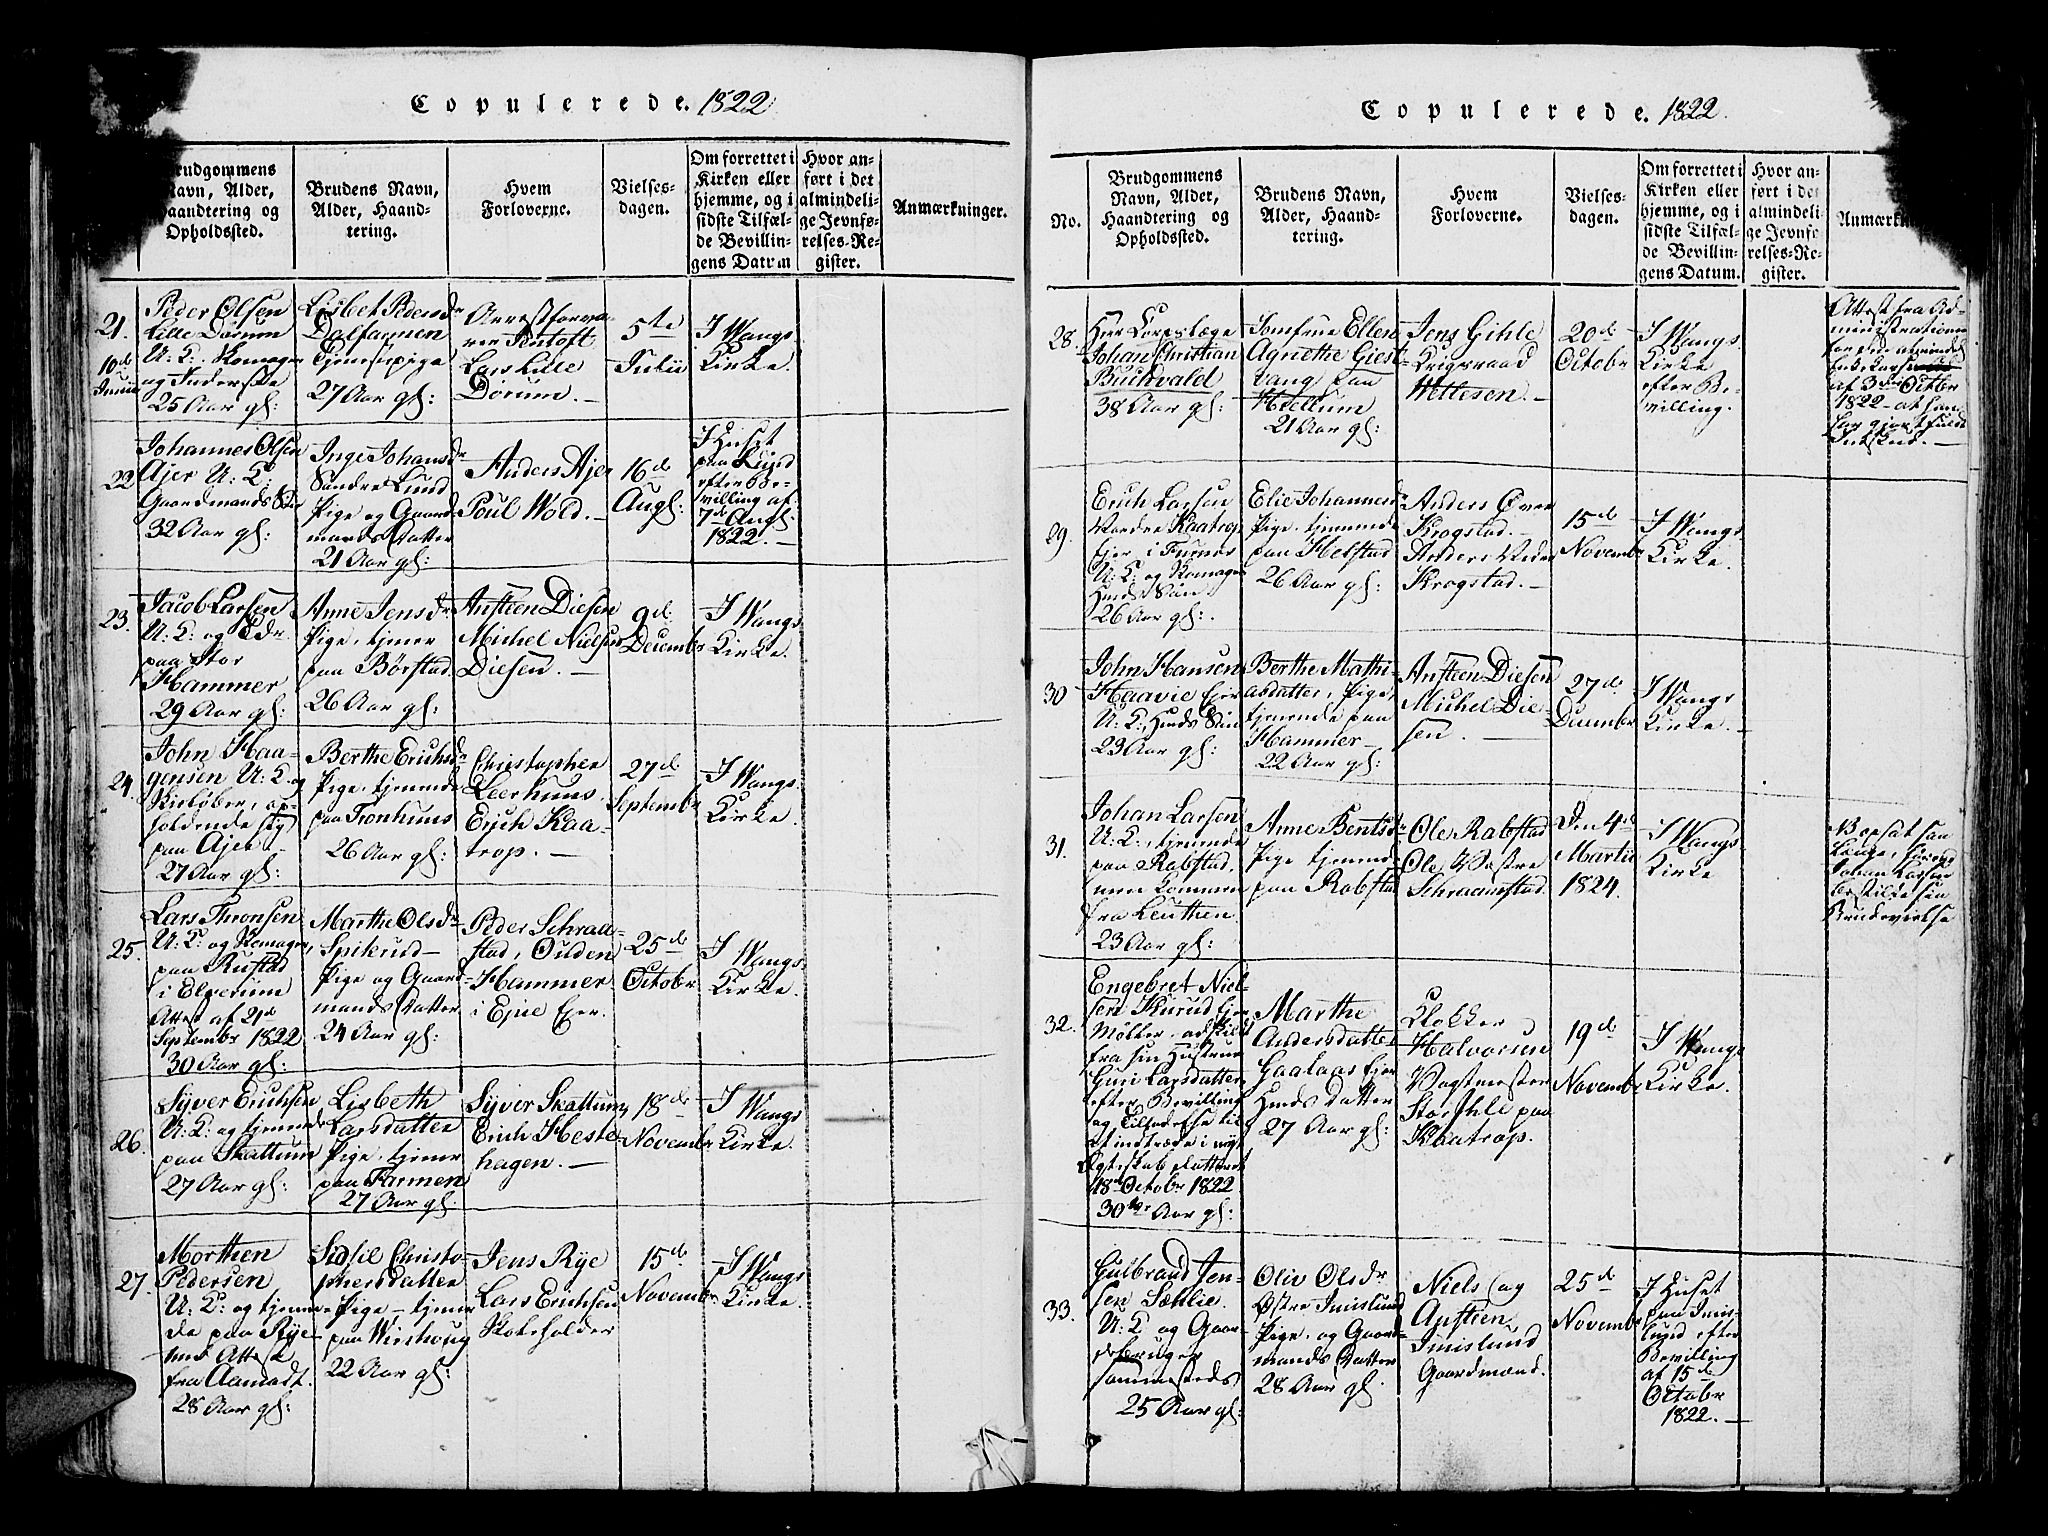 Copulerede. 1822
Brudgommens Navn, Alder, Haandtering og Opholdssted.
Brudens Navn, Alder, Haandtering.
Hvem Forloverne.
Vielsesdagen.
Om forrettet i Kirken eller hjemme, og i sidste Tilfælde Bevillingens Datum
Hvor anført i det almindelige Jevnførelses-Register.
Anmærkninger.
21.
10de
Junii
Peder Olsen
Lille Dørum
U: K:
og Inderste
25 Aar gl:
Lisbet Pedersdr
Dalfarmen
Tjenstepige
27 Aar gl:
Arrestforva-
rer Tentoft
Lars Lille
Dørum. –
5te
Julii
I Wangs
Kirke.
22
Johannes Olsen
Ajer U: K:
Gaardmands Søn
32 Aar gl:
Inge Johansdr
Søndre Lund
Pige og Gaard-
mands Datter
21 Aar gl:
Anders Ajer
Poul Wold. –
16de
Augl:
I Huset
paa Lund
efter Be-
villing af
7de Augl.
1822. –
23.
Jacob Larsen
U: K: og
paa Stor
Hammer
29 Aar gl:
Anne Jensdr
Pige, tjener
paa Børstad
26 Aar gl:
Ansteen Diesen
Michel Nielsen
Diesen. –
9de
Decembr
I Wangs
Kirke.
24.
John Haa-
gensen U: K: og
Skieløber, op-
holdende sig
paa Ajer
27 Aar gl:
Berthe Erichsdr
Pige, tjenende
paa Tronhuus
26 Aar gl:
Christopher
Leerhuus
Erich Kaa-
trop. –
27de
Septembr
I Wangs
Kirke.
25.
Lars Thronsen
U: K: og
paa Rustad
i Elverum
Attest af 21de
Septembr 1822
30 Aar gl:
Marthe Olsdr
Spikrud
Pige og Gaard-
mands Datter
24 Aar gl:
Peder Schraa-
stad, Ouden
Hammer
i Ejne Ejer.
25de
Octobr
I Wangs
Kirke.
26.
Syver Erichsen
U: K: og tjenende
paa Skattum
27 Aar gl:
Lisbeth
Larsdatter
Pige, tjener
paa Farmen
27 Aar gl.
Syver Skattum
Erich Heste-
hagen. –
18de
Novembr
I Wangs
Kirke.
27.
Morthen
Pedersen
U: K: og tjenen-
de paa Rye
med Attest
fra Aamodt.
28 Aar gl:
Sidsil Christo-
phersdatter
Pige – tjener
paa Wirshoug
22 Aar gl:
Jens Rye
Lars Erichsen
Skoleholder
15de
Novembr
I Wangs
Kirke.
Copulerede. 1822.
No.
Brudgommens Navn, Alder, Haandtering og Opholdssted.
Brudens Navn, Alder, Haandtering.
Hvem Forloverne.
Vielsesdagen.
Om forrettet i Kirken eller hjemme, og i sidste Tilfælde Bevillingens Datum.
Hvor anført i det almindelige Jevnførelses-Register.
28.
Herr Corpslæge
Johan Christian
Buchvald
38 Aar gl:
Jomfrue Ellen
Agnethe Giest-
vang paa
Hiellum
21 Aar gl:
Jens Gihle
Krigsraad
Wettesen. –
20de
Octobr
I Wangs
Kirke
efter Be-
villing.
Attest fra Ad-
ministrationen
af 3die Octbr
1822 – at han
har gjort fuldt
Indskud. –
29.
Erich Larsen
Nordre Kaatrop
Ejer i Furnes
U: K: og
26 Aar gl:.
Elie Johannesdr
Pige, tjenende
paa Helstad
26 Aar gl:
Anders Øvre
Krogstad. –
Anders Nedre
Krogstad. –
15de
Novembr
I Wangs
Kirke.
30
John Hansen
Haavie Ejer
U: K: Huusm: Søn
23 Aar gl:
Berthe Mathi-
asdatter, Pige,
tjenende paa
Hammer –
22 Aar gl:
Ansteen Diesen
Michel Die-
sen. –
27de
Decembr
I Wangs
Kirke. –
31.
Johan Larsen
U: K:, tjenende
paa Rabstad,
men kommen
fra Leuthen
23 Aar gl:
Anne Bentsdr
Pige tjenend
paa Rabstad
Ole Rabstad
Ole Østre
Schraamstad.
Den 4de
Martii
1824.
I Wangs
Kirke
NB opsat saa
længe, fordi
Johan Larsen
bestilde sin
Brudevielse
32.
Engebret Niel-
sen Kurud Ejer
Møller, adskildt
fra sin Hustrue
Guri Larsdatter
efter Bevilling
og Tilladelse til
at indtræde i nyt
Ægteskab dateret
18de Octobr 1822
30 Aar gl:
Marthe
Andersdatter
Gaalaas Ejer
Huusm: Datter
27 Aar gl:
Klokker
Halvorsen
Vagtmester
Stor Ihle paa
Kaatrop.
19de
Novembr
I Wangs
Kirke.
33.
Gulbrand Jen-
sen Sæhlie.
U: K og Gaar-
sammesteds
25 Aar gl:
Oliv Olsdr
Østre Imislund
Pige og Gaard-
mands Datter
28 Aar gl.
Niels og
Ansteen
Imislund
Gaardmænd.
25de
Novembr
I Huset
paa Imis-
lund efter
Bevilling
af 15de
Octobr
1822. –